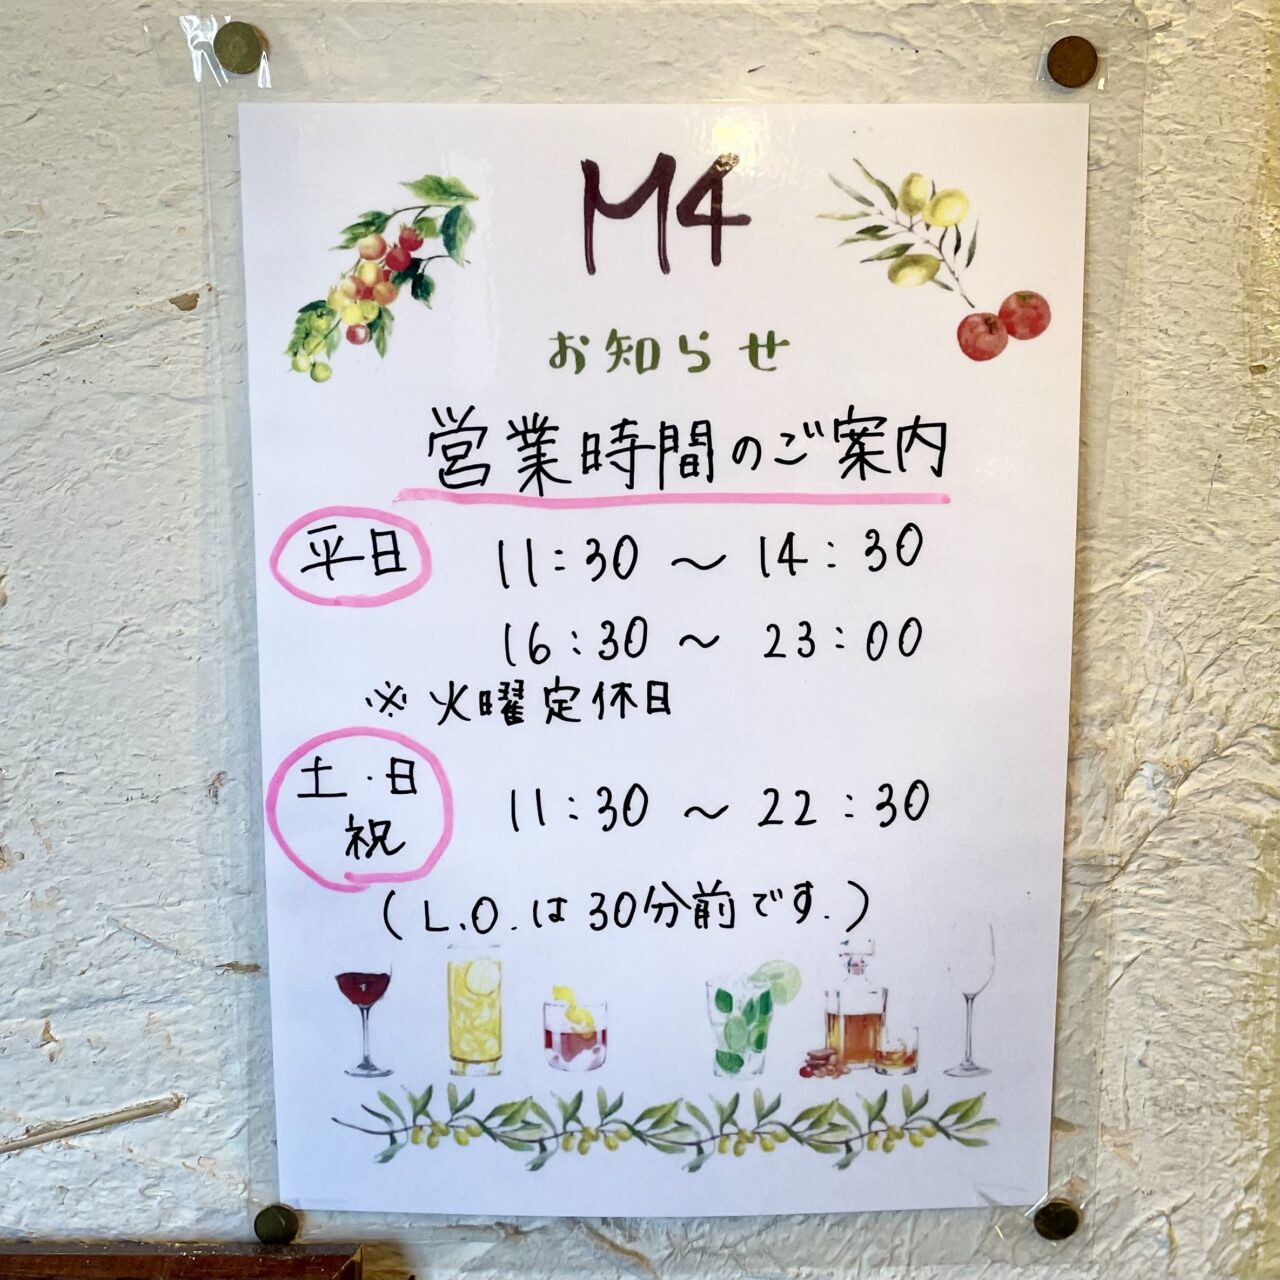 M4
お知らせ
営業時間のご案内
平日 11:30 〜 14:30
16:30 〜 23:00
※ 火曜定休日
土・日 11:30 〜 22:30
祝
(L.O.は30分前です.)